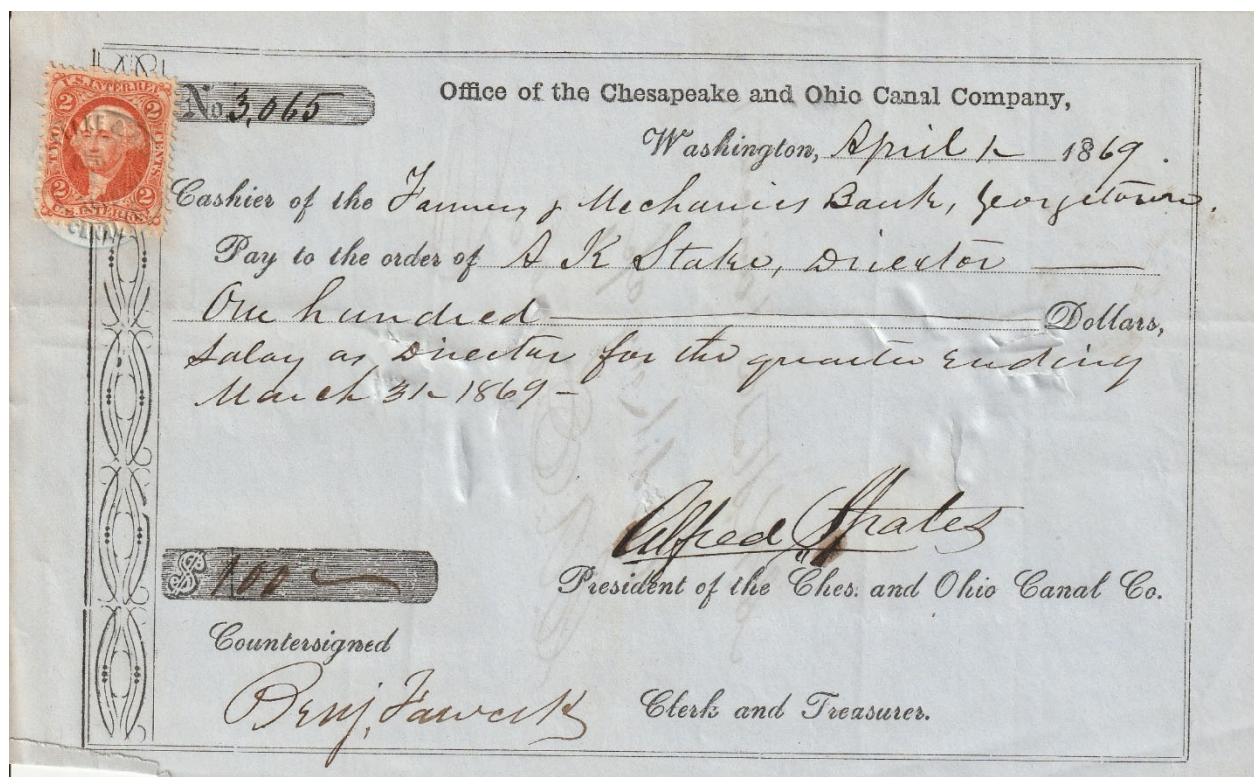 U.S. INTER. REV.
2 2
TWO CENTS
2 2
No 3,065
Office of the Chesapeake and Ohio Canal Company,
Washington, April 1 1869.
Cashier of the Farmers & Mechanics Bank, Georgetown.
Pay to the order of A K Stake, Director
One hundred Dollars,
Salary as Director for the quarter ending
March 31 1869 -
Alfred Spates
$ 100
President of the Ches. and Ohio Canal Co.
Countersigned
Benj. Fawcett Clerk and Treasurer.